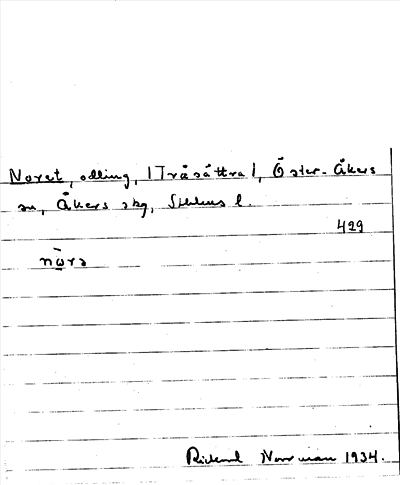 Noret, odling, |Tråsättra|, Öster-Åkers
sn, Åkers skg, Sthlms l.
429
nωrə
Rickard Norrman 1934.